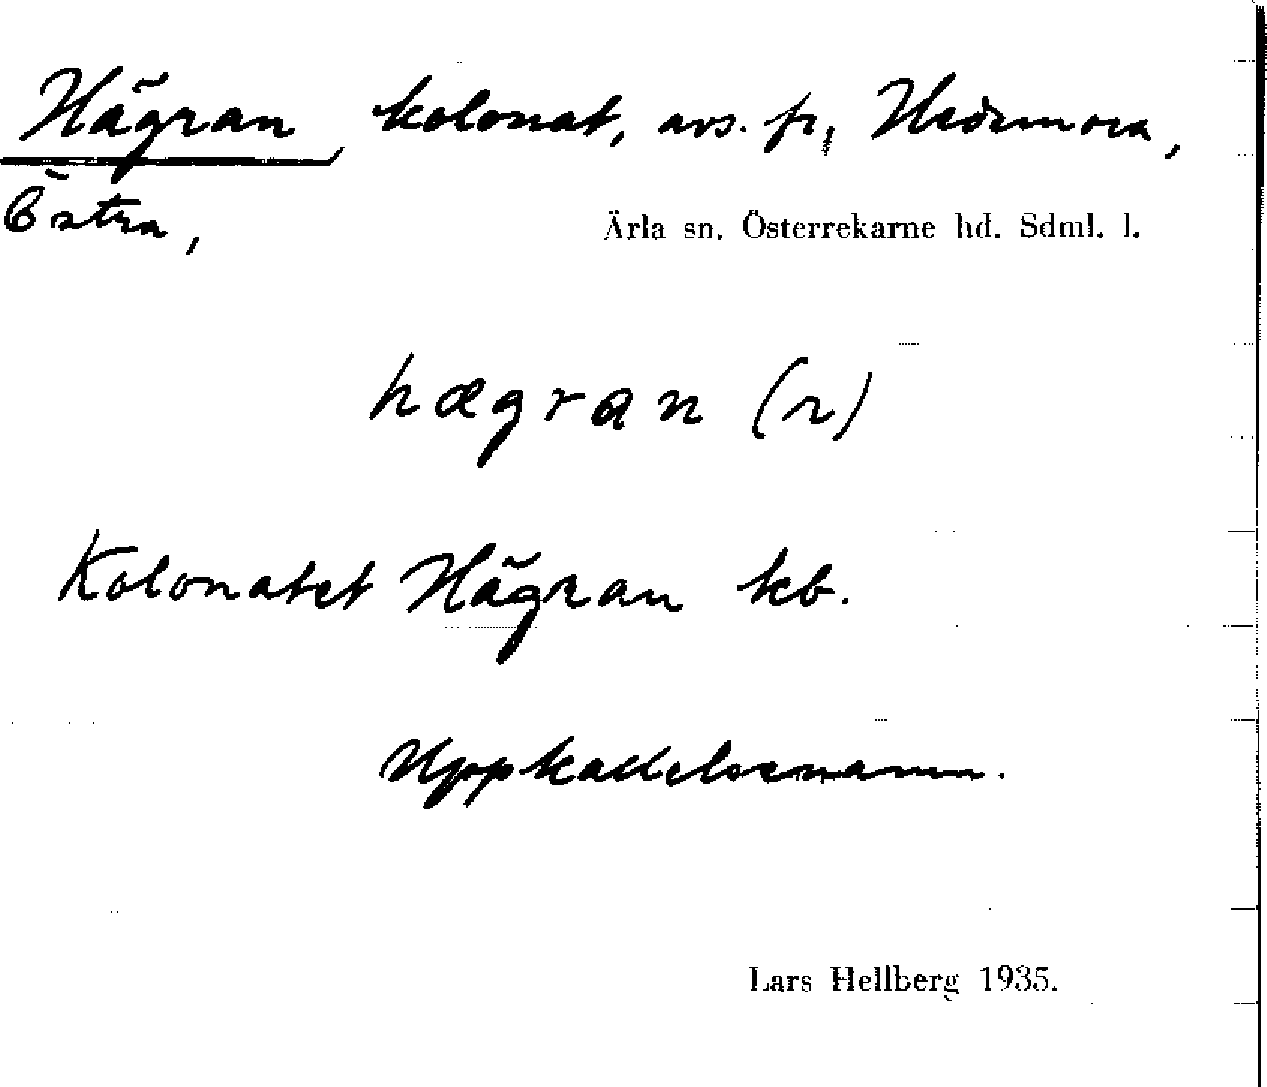 Hägran, kolonat, avs. fr, Hedemora,
Östra,
Ärla sn. Österrekarne hd. Sdml. l.
hægran (r)
Kolonatet Hägran kb.
Uppkallelsenamn.
Lars Hellberg 1935.